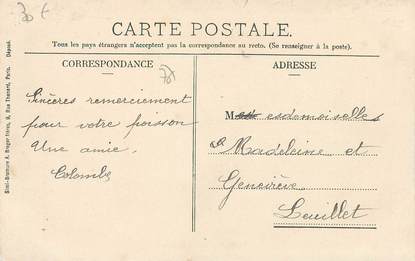 CARTE POSTALE.
Tous les pays étrangers n'acceptent pas la correspondance au recto. (Se renseigner à la poste).
CORRESPONDANCE
ADRESSE
Sincères remerciement
pour votre poisson
Une amie.
Colombe
Mesdemoiselles
Madeleine et
Geneviève
Leuillet
Simili-Bromure A. Breger frères, 9, Rue Thénard, Paris. Déposé.